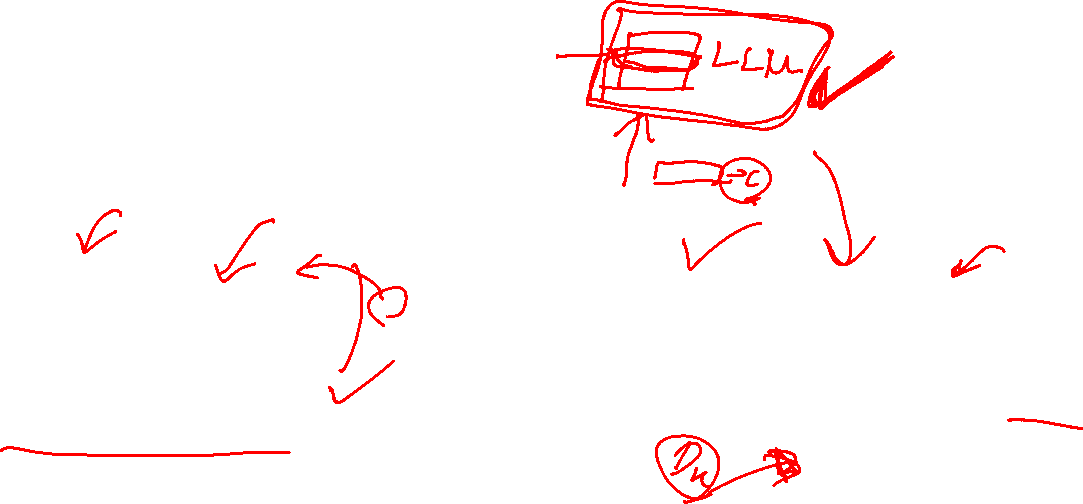 LLM
→c
Dn